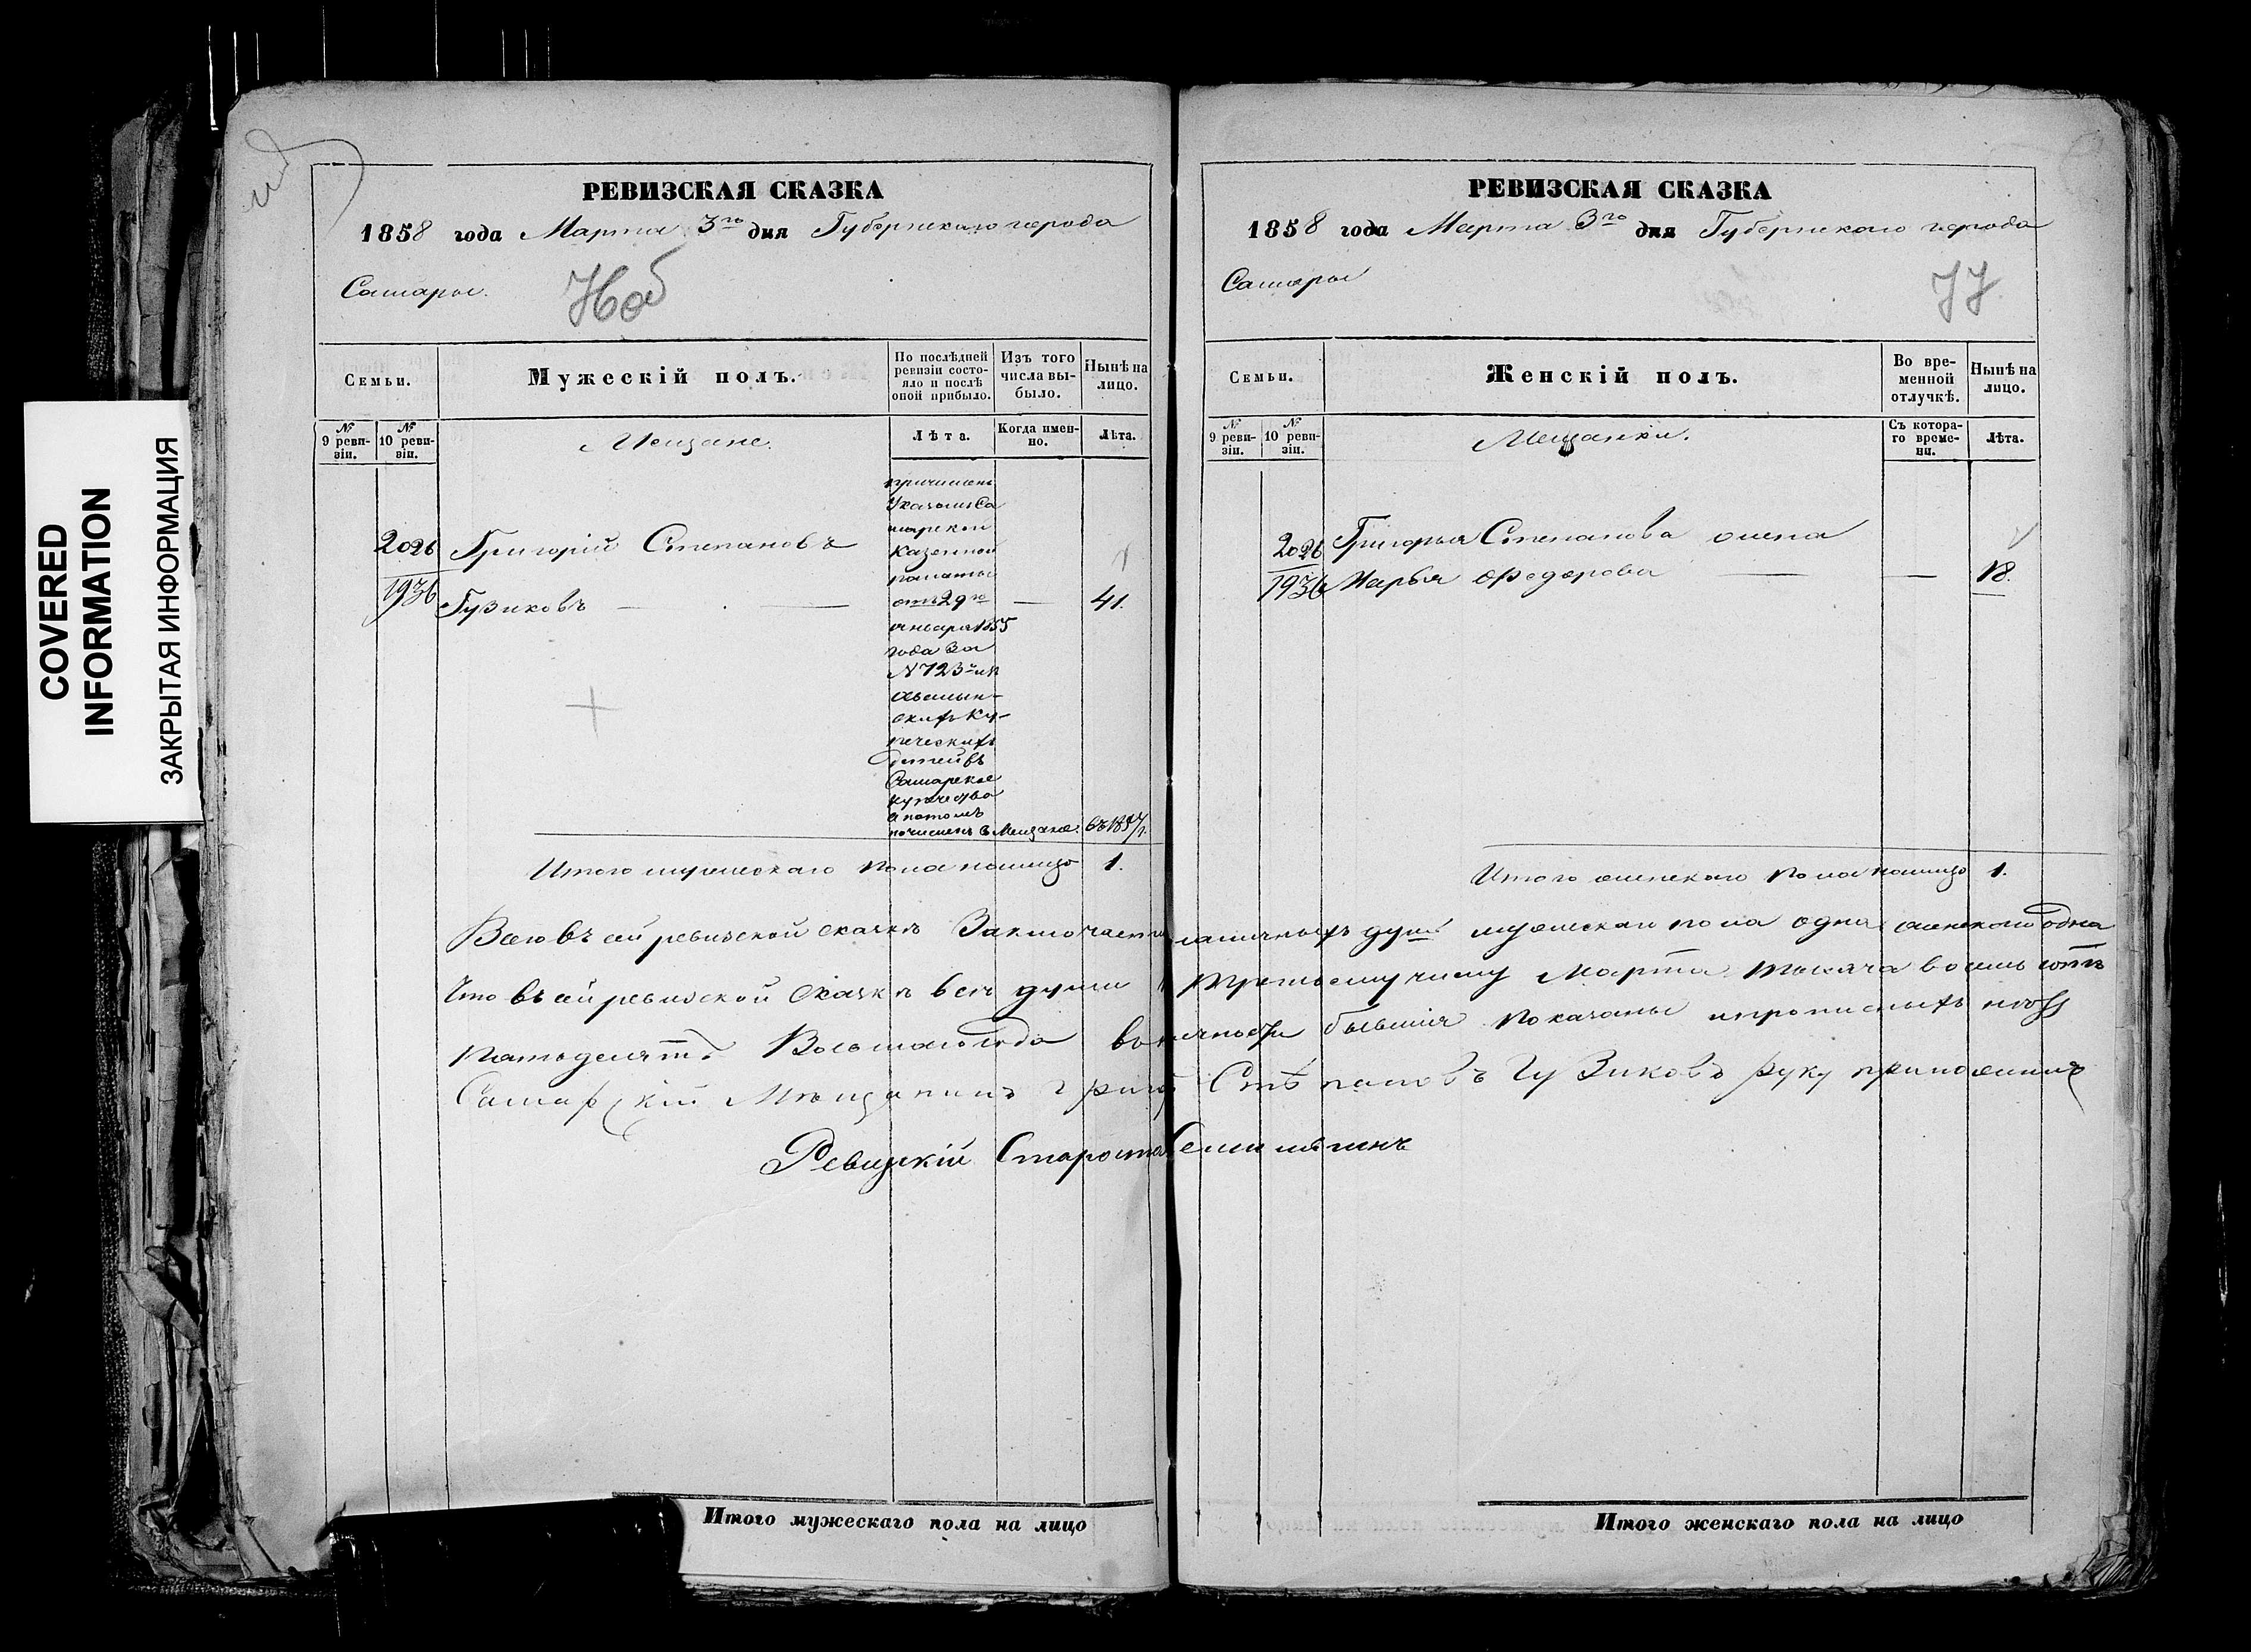 COVERED
INFORMATION
ЗАКРЫТАЯ ИНФОРМАЦИЯ
РЕВИЗСКАЯ СКАЗКА
1858 года Марта 3го дня Губернскаго города
Самары.
Семьи.
Мужескiй полъ.
По послѣдней ревизiи состояло и послѣ оной прибыло.
Изъ того числа выбыло.
Нынѣ на лицо.
№ 9 ревизiи.
№ 10 ревизiи.
Мещане.
Лѣта.
Когда именно.
Лѣта.
2026
1936
Григорiй Степановъ
Гузиковъ
41.
причисленъ
Указомъ Са
марской
казенной
палаты
отъ 29го
января 1855
года за
№ 723
купеческихъ
дѣтей въ
Самарское
купечество
а потомъ
почисленъ в Мещане. съ 1857 г.
Итого мужескаго пола налицо 1.
РЕВИЗСКАЯ СКАЗКА
1858 года Марта 3го дня Губернскаго города
Самары
77
Семьи.
Женскiй полъ.
Во временной отлучкѣ.
Нынѣ на лицо.
№ 9 ревизiи.
№ 10 ревизiи.
Мещанки.
Съ котораго времени.
Лѣта.
2026
1936
Григорья Степанова жена
Марья Федорова
18.
Итого женскаго пола налицо 1.
Всего въ сей ревизской сказкѣ Заключается наличныхъ душъ мужескаго пола одна женскаго одна
Что въ сей ревизской сказкѣ всѣ души к третьему числу Марта тысяча восемь сотъ
пятьдесятъ Восьмаго года в личности бывшiя показаны и прописныхъ нѣтъ
Самарскiй Мѣщанинъ Григо Степановъ Гузиковъ руку приложилъ
Ревизскiй Староста
Итого мужескаго пола на лицо
Итого женскаго пола на лицо